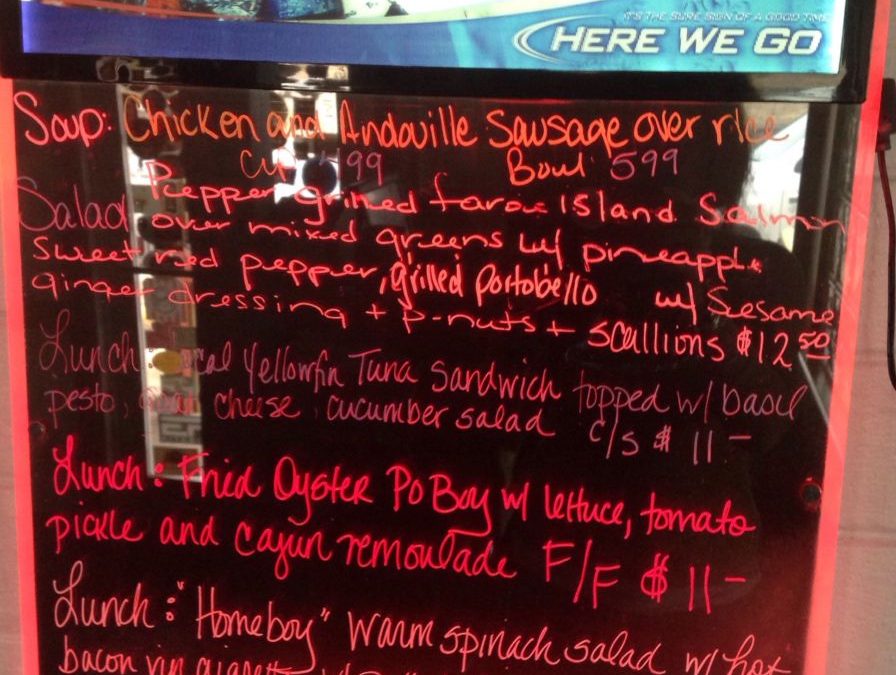 IT'S THE SURE SIGN OF A GOOD TIME
HERE WE GO
Soup: Chicken and Andouille Sausage over rice
Cup 499 Bowl 599
Salad Pepper grilled faroe island Salmon
over mixed greens w/ pineapple
sweet red pepper, grilled portobello w/ Sesame
ginger dressing + p-nuts + scallions $12 50
Lunch: Local Yellowfin Tuna Sandwich topped w/ basil
pesto, cheese, cucumber salad c/s $11-
Lunch: Fried Oyster Po Boy w/ lettuce, tomato
pickle and cajun remoulade F/F $11-
Lunch: "Homeboy" warm spinach salad w/ hot
bacon vinaigrette w/